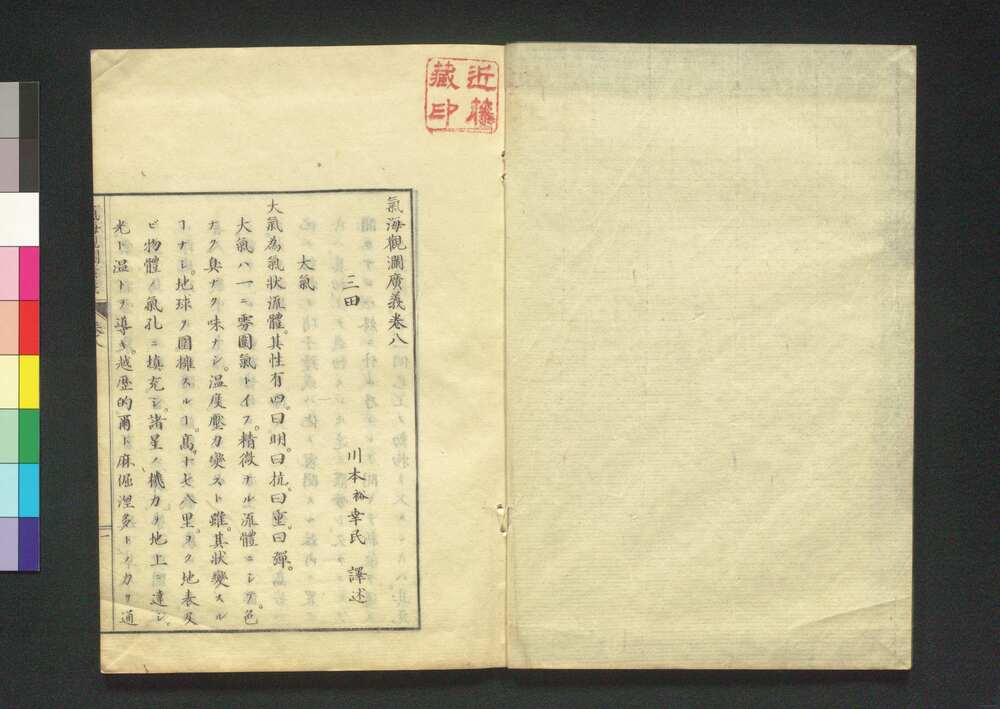 近藤
蔵印
氣海觀瀾廣義卷八
三田 川本裕幸民 譯述
大氣
大氣為氣狀流體。其性有四。曰明。曰抗。曰重。曰彈。
大氣ハ一ニ雰圍氣トイフ。精微ナル流體ニシテ。色
ナク臭ナク味ナシ。温度壓力變ズト雖。其狀變スル
ヿナシ。地球ヲ圍擁スルヿ。高サ十七八里。ヨク地表及
ビ物體ノ氣孔ニ填充シ。諸星ノ機力ヲ地上ニ達シ。
光ト温トヲ導キ。越歷的爾ト麻倔涅多トノ力ヲ通
卷八